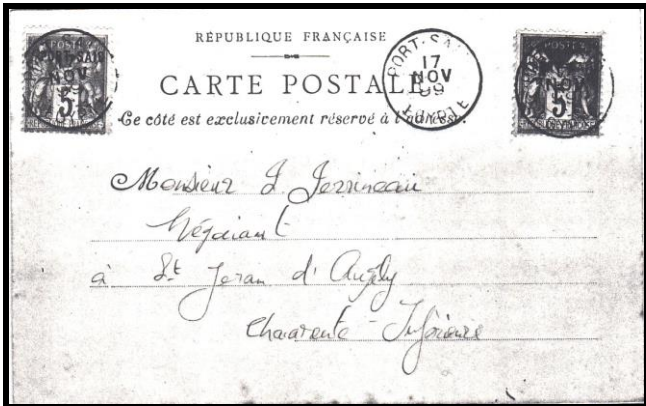 RÉPUBLIQUE FRANÇAISE
CARTE POSTALE
Ce côté est exclusivement réservé à l'adresse.
PORT-SAÏD
17
NOV
99
EGYPTE
POSTES
PORT-SAID
NOV
99
5
POSTES
NOV
5
Monsieur J Jerrineau
Négociant
à St Jean d'Angély
Charente-Inférieure